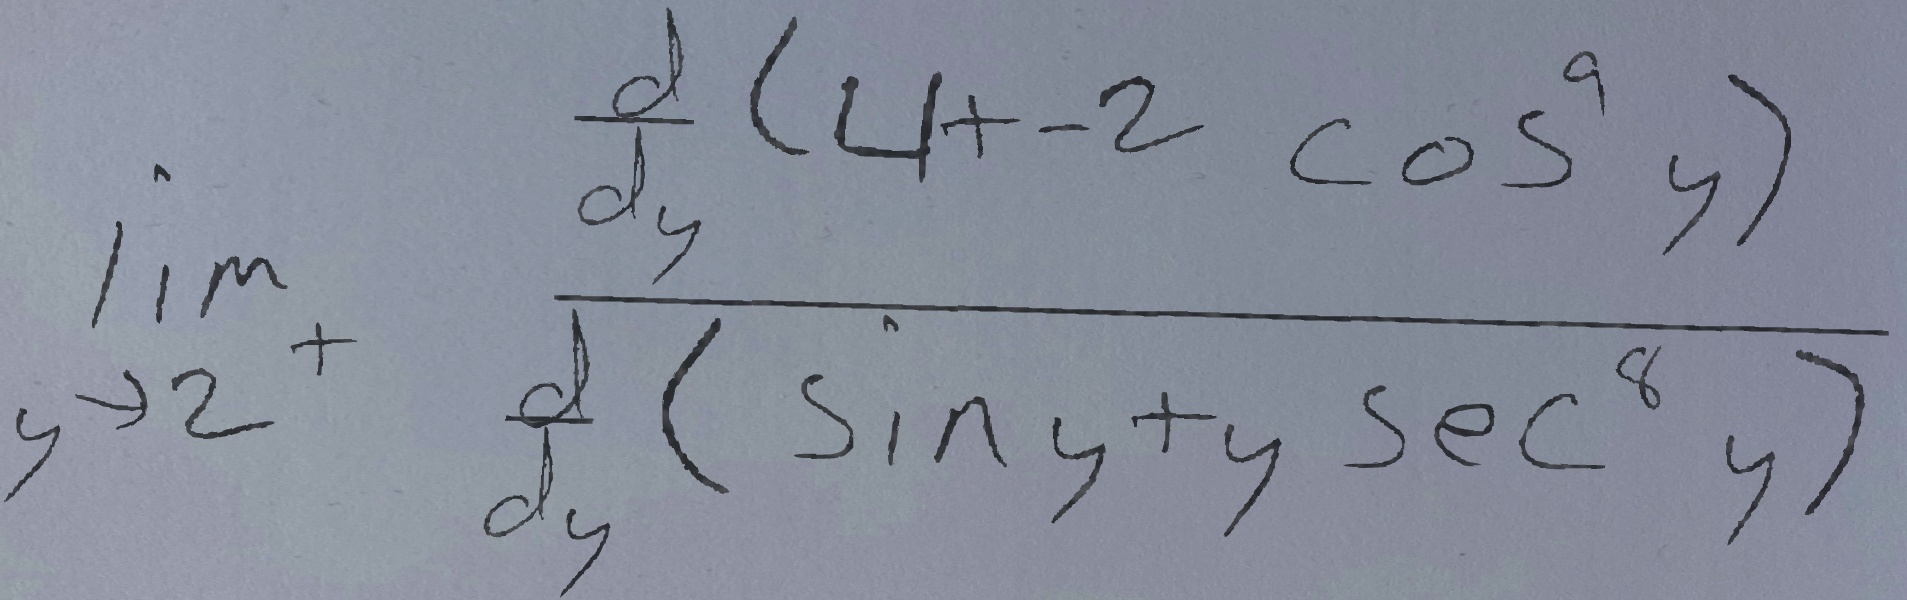 \lim_{y \to 2^+} \frac{\frac{d}{dy}(4+-2\cos^9 y)}{\frac{d}{dy}(\sin y+y\sec^8 y)}